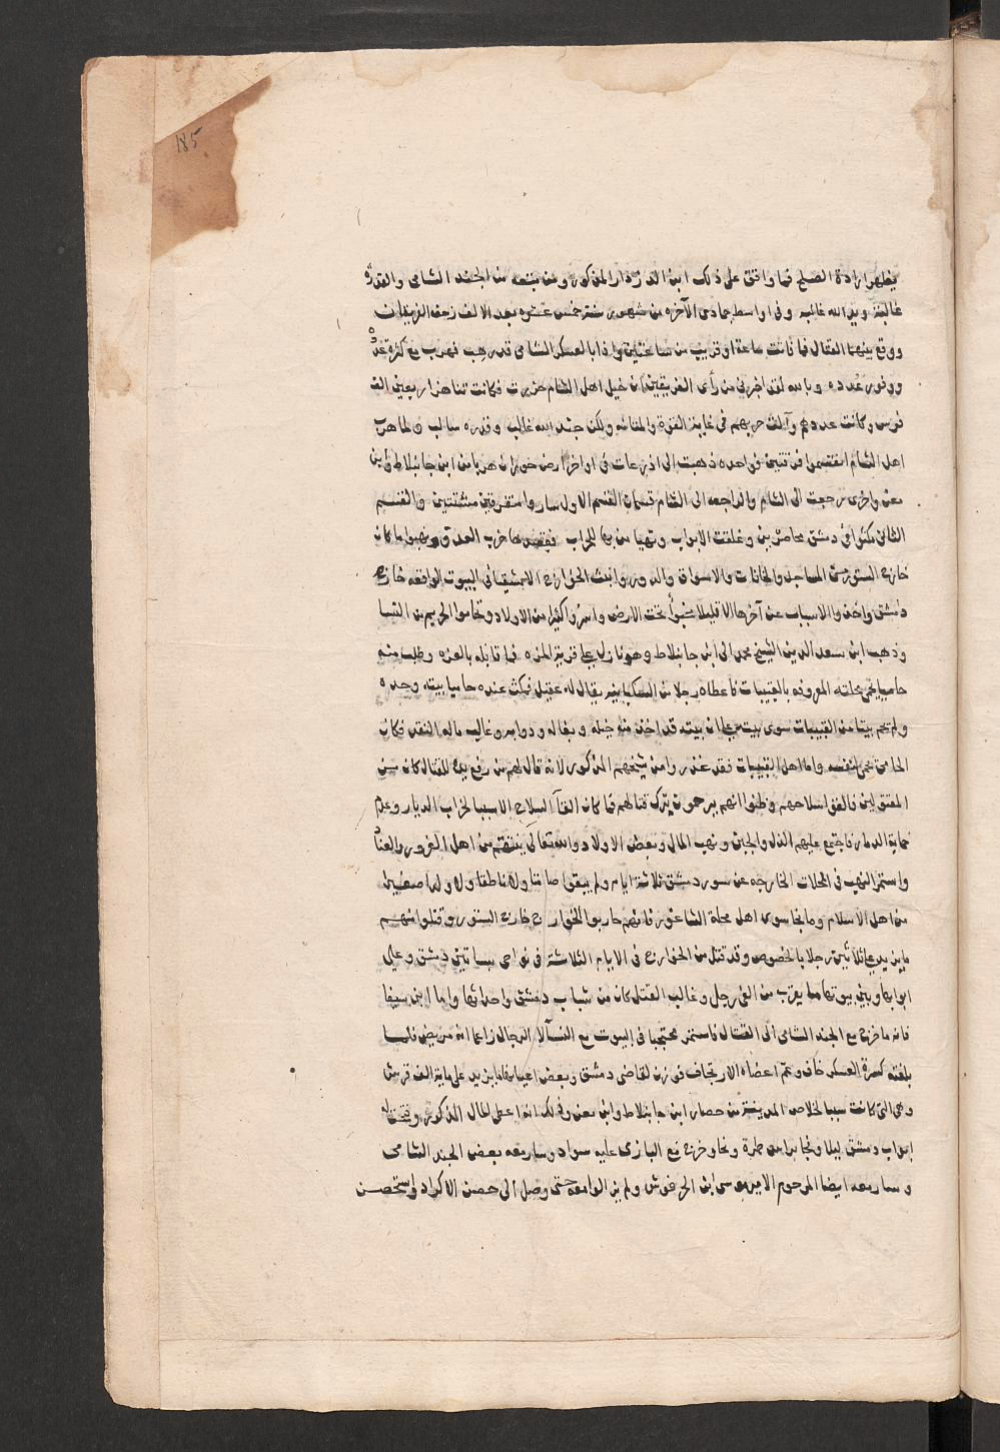 185
يظهر ارادة الصلح فما وافق على ذلك ابن الدزدار المذكور ومن يتبعه من الجند الشامي والقدرة
غالبة ويد الله غالبه وفي اواسط جمادى الآخره من شهور سنة خمس عشره بعد الالف زحف الفريقان
ووقع بينهما القتال فما كانت ساعة او قريب من ساعتين واذا بالعسكر الشامي قد هرب مع كثرة
ووفور عدده وبالله لقد اخبرني من رأى الفريقين ان خيل اهل الشام حزرت فكانت تناهز اربعين الف
فرس وكانت عددهم وآلات حربهم في غاية القوة والمتانه ولكن جند الله غالب وقدره سالب ولما هرب
اهل الشام انقسموا فرقتين فواحده ذهبت الى اذرعات في اواخر ارض حوران هربا من ابن جانبلاط وابن
معن واخرى رجعت الى الشام والراجعه الى الشام قسمان القسم الاول ساروا متفرقين مشتتين والقسم
الثاني مكثوا في دمشق محاصرين وغلقت الابواب وتهيا من بها للحراب فقصدها حزب العدو ونهبوا ما كان
خارج السور من المساجد والخانات والاسواق والدور وانبث الخوارج في البيوت الواقعه خارج
دمشق واخذوا الاسباب عن آخرها الا قليلا مخبوأ تحت الارض واسروا كثيرا من الاولاد وتحاموا الحريم من النسا
وذهب ابن سعد الدين الشيخ محمد الى ابن جانبلاط وهو نازل على قرية المزه فما قابله بالعزه وطلب منه
حاميا يحمي محلته المعروفه بالقبيبات فاعطاه رجلا من السكبانيه يقال له عقيل فمكث عنده حاميا بيته وحده
ولم يحم بيتا من القبيبات سوى بيته على ان بيته قد اخذ منه خيله وبغاله ودوابه وغالب ماله النقد فكان
الحامي يحمي لنفسه واما اهل القبيبات فقد غدروا من شيخهم المذكور لانه قال لهم من رفع يده للقتال كان من
المقتولين فالقوا سلاحهم وظنوا انهم يرحمون بترك قتالهم فما كان القآ السلاح الا سببا لخراب الديار وعدم
حماية الذمار فاجتمع عليهم الذل والجبن ونهب المال وبعض الاولاد والله تعالى ينتقم من اهل الغرور والعناد
واستمر النهب في المحلات الخارجه عن سور دمشق ثلاثة ايام ولم يبقوا صامتا ولا ناطقا ولا ولدا صغيرا
من اهل الاسلام وما نجا سوى اهل محلة الشاغور فانهم حاربوا الخوارج خارج السور وقتلوا منهم
ما يزيد على ثلاثين رجلا بالخصوص وقد قتل من الخوارج في الايام الثلاثة في نواحي بساتين دمشق وعلى
ابوابها وبين بيوتها ما يقرب من الفي رجل وغالب القتل كان من شباب دمشق واحداثها واما ابن سيفا
فانه ما خرج مع الجند الشامي الى القتال فاستمر محتجبا في البيوت مع النسآ لا الرجال زاعما انه مريض فلما
بلغته كسرة العسكر خاف وعم اعضاه الارتجاف فوزن لقاضي دمشق وبعض اعيانها ما يزيد على ماية الف قرش
وهي التي كانت سببا لخلاص المدينة من حصار ابن جانبلاط وابن معن وذلك انه اعطى المال المذكور وفتحت له
ابواب دمشق ليلا ونجا وخرج مع البازي عليه سواد وسار معه بعض الجند الشامي
وسار معه ايضا المرحوم الامير موسى ابن الحرفوش ولم يزالوا معه حتى وصل الى حصن الاكراد واستحصن